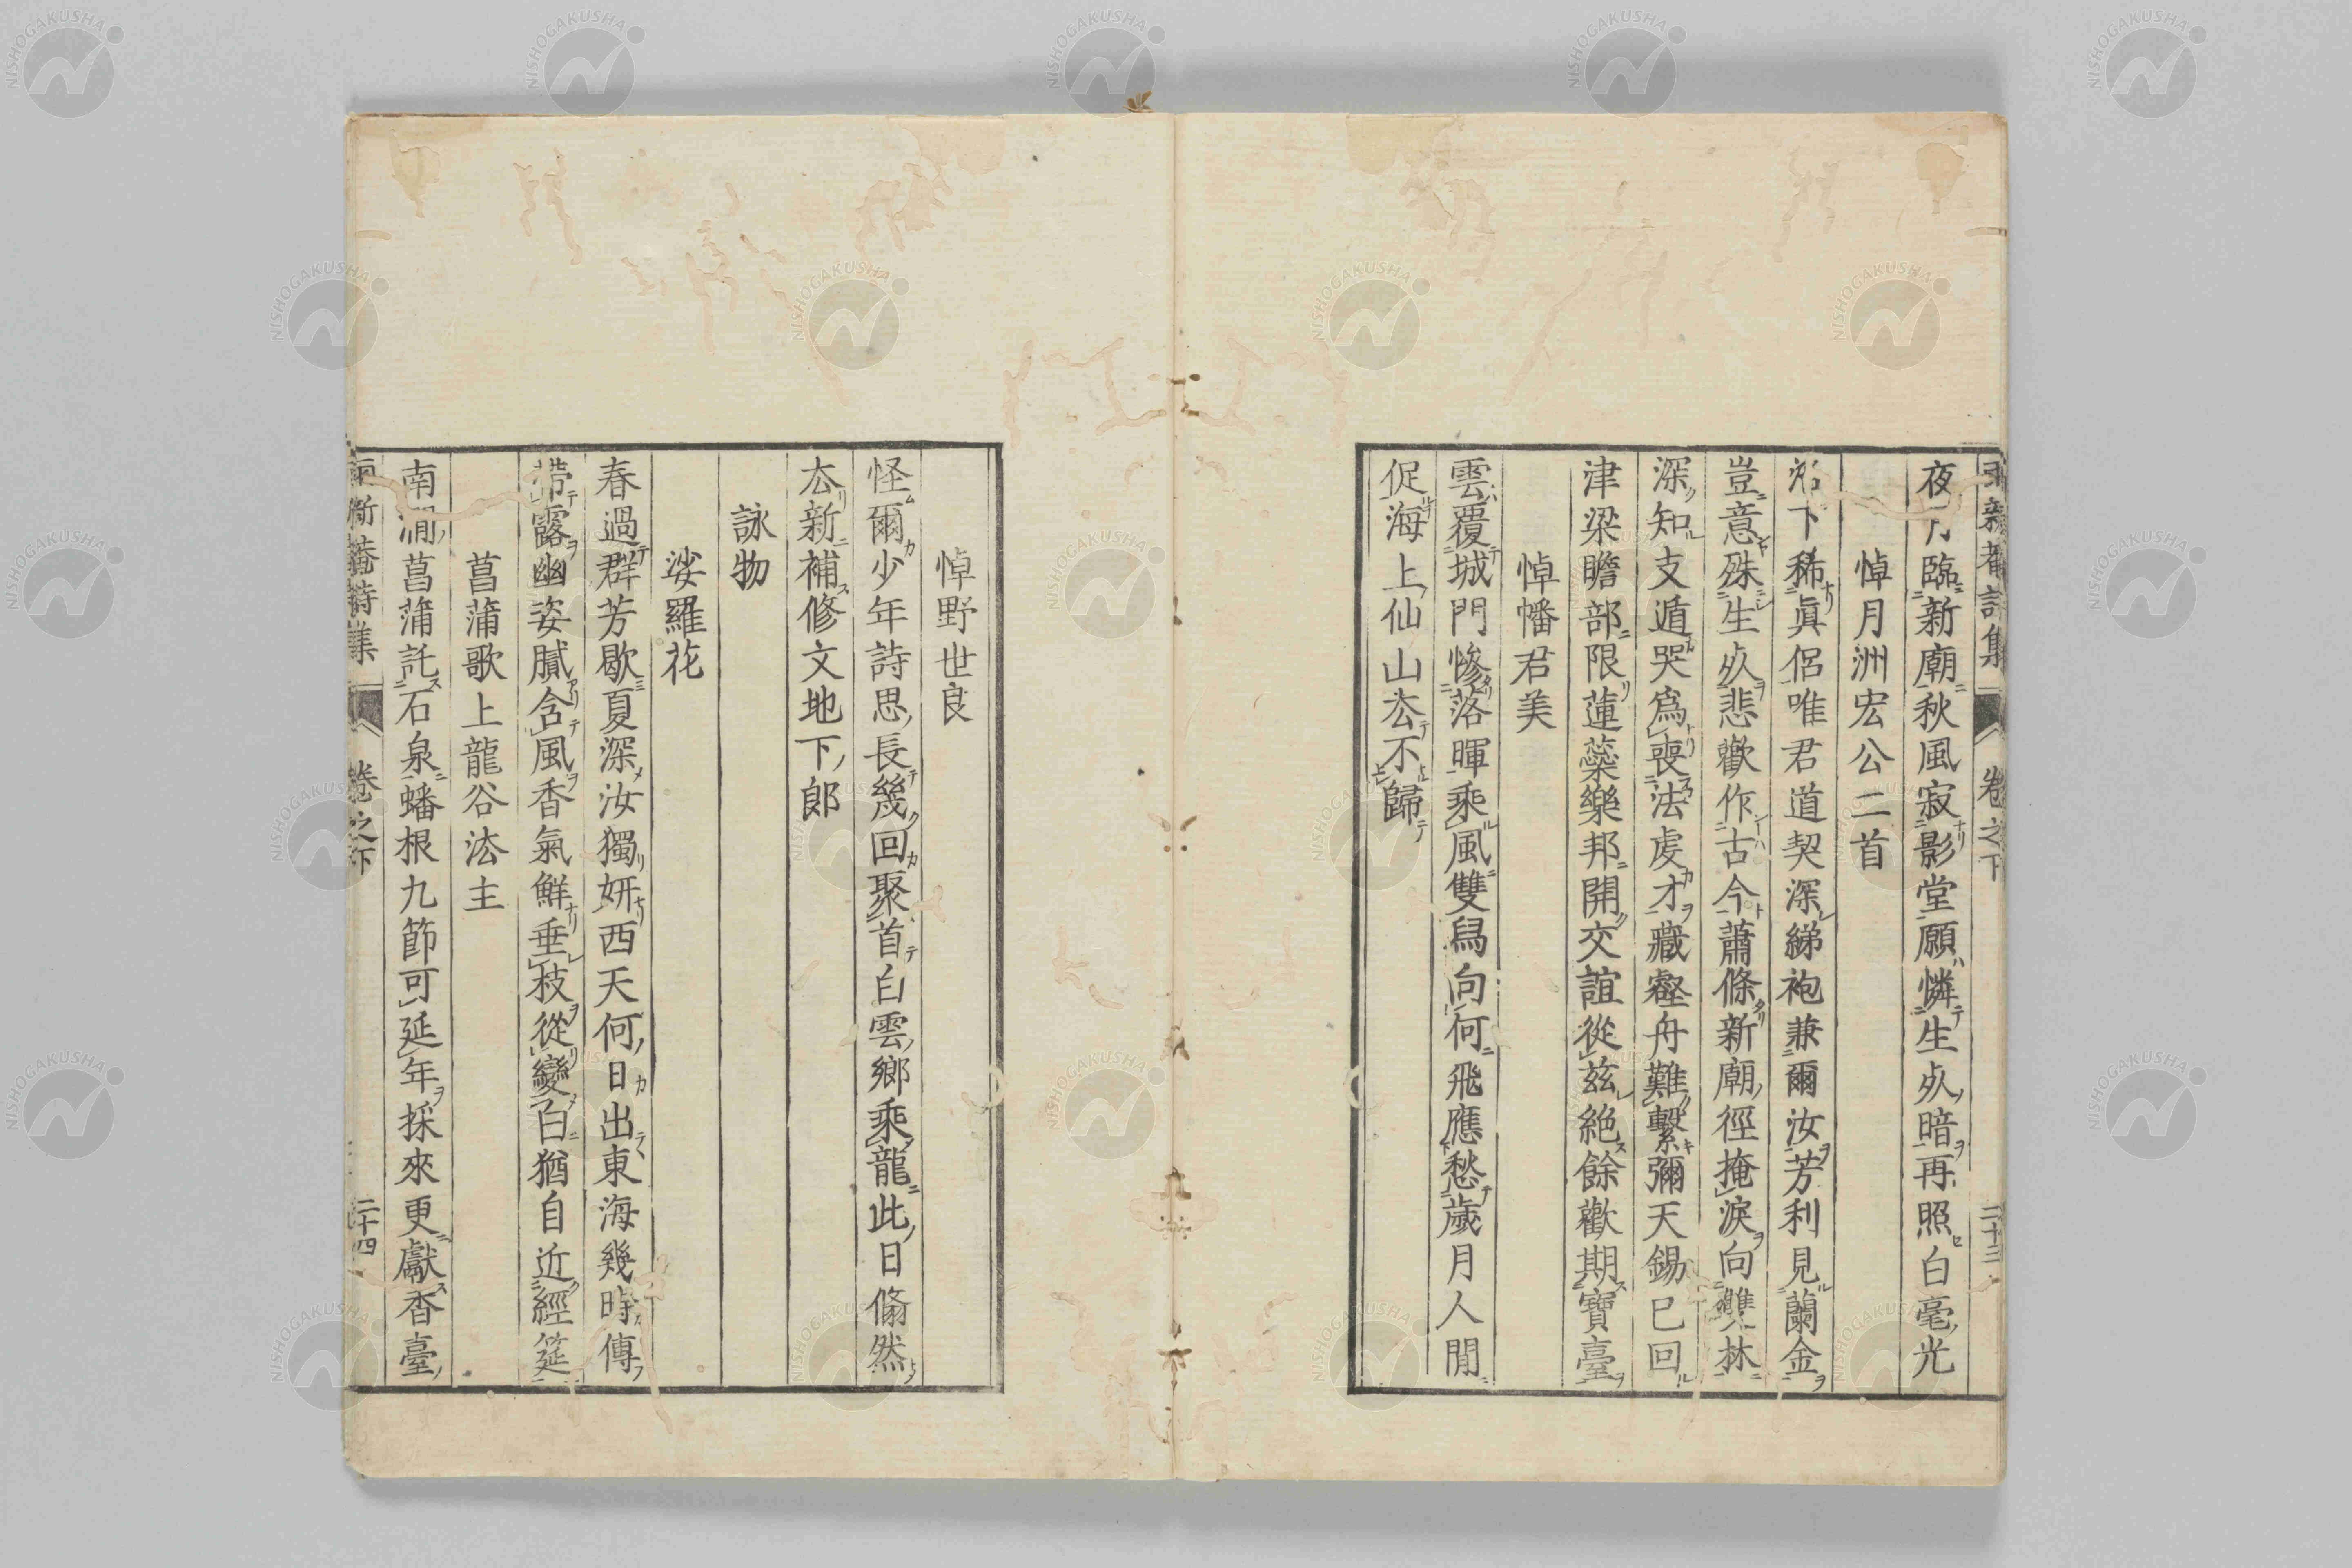 夜月臨新廟秋風寂影堂願憐生夾暗再照白毫光
悼月洲宏公二首
洛下稀眞侶唯君道契深綈袍兼爾汝芳利見蘭金
豈意殊生夾悲歡作古今蕭條新廟徑掩淚向雙林
深知支遁哭爲喪法虔才藏壑舟難繫彌天錫已回
津梁瞻部限蓮蘂樂邦開交誼從茲絶餘歡期寶臺
悼幡君美
雲覆城門慘落暉乘風雙舄向何飛應愁歲月人閒
促海上仙山厺不歸
卷之下
二十三
悼野世良
怪爾少年詩思長幾回聚首白雲鄉乘龍此日翛然
厺新補修文地下郎
詠物
娑羅花
春過群芳歇夏深汝獨妍西天何日出東海幾時傳
帶露幽姿膩含風香氣鮮垂枝從變白猶自近經筵
菖蒲歌上龍谷法主
南澗菖蒲託石泉蟠根九節可延年採來更獻香臺
卷之下
二十四
NISHOGAKUSHA